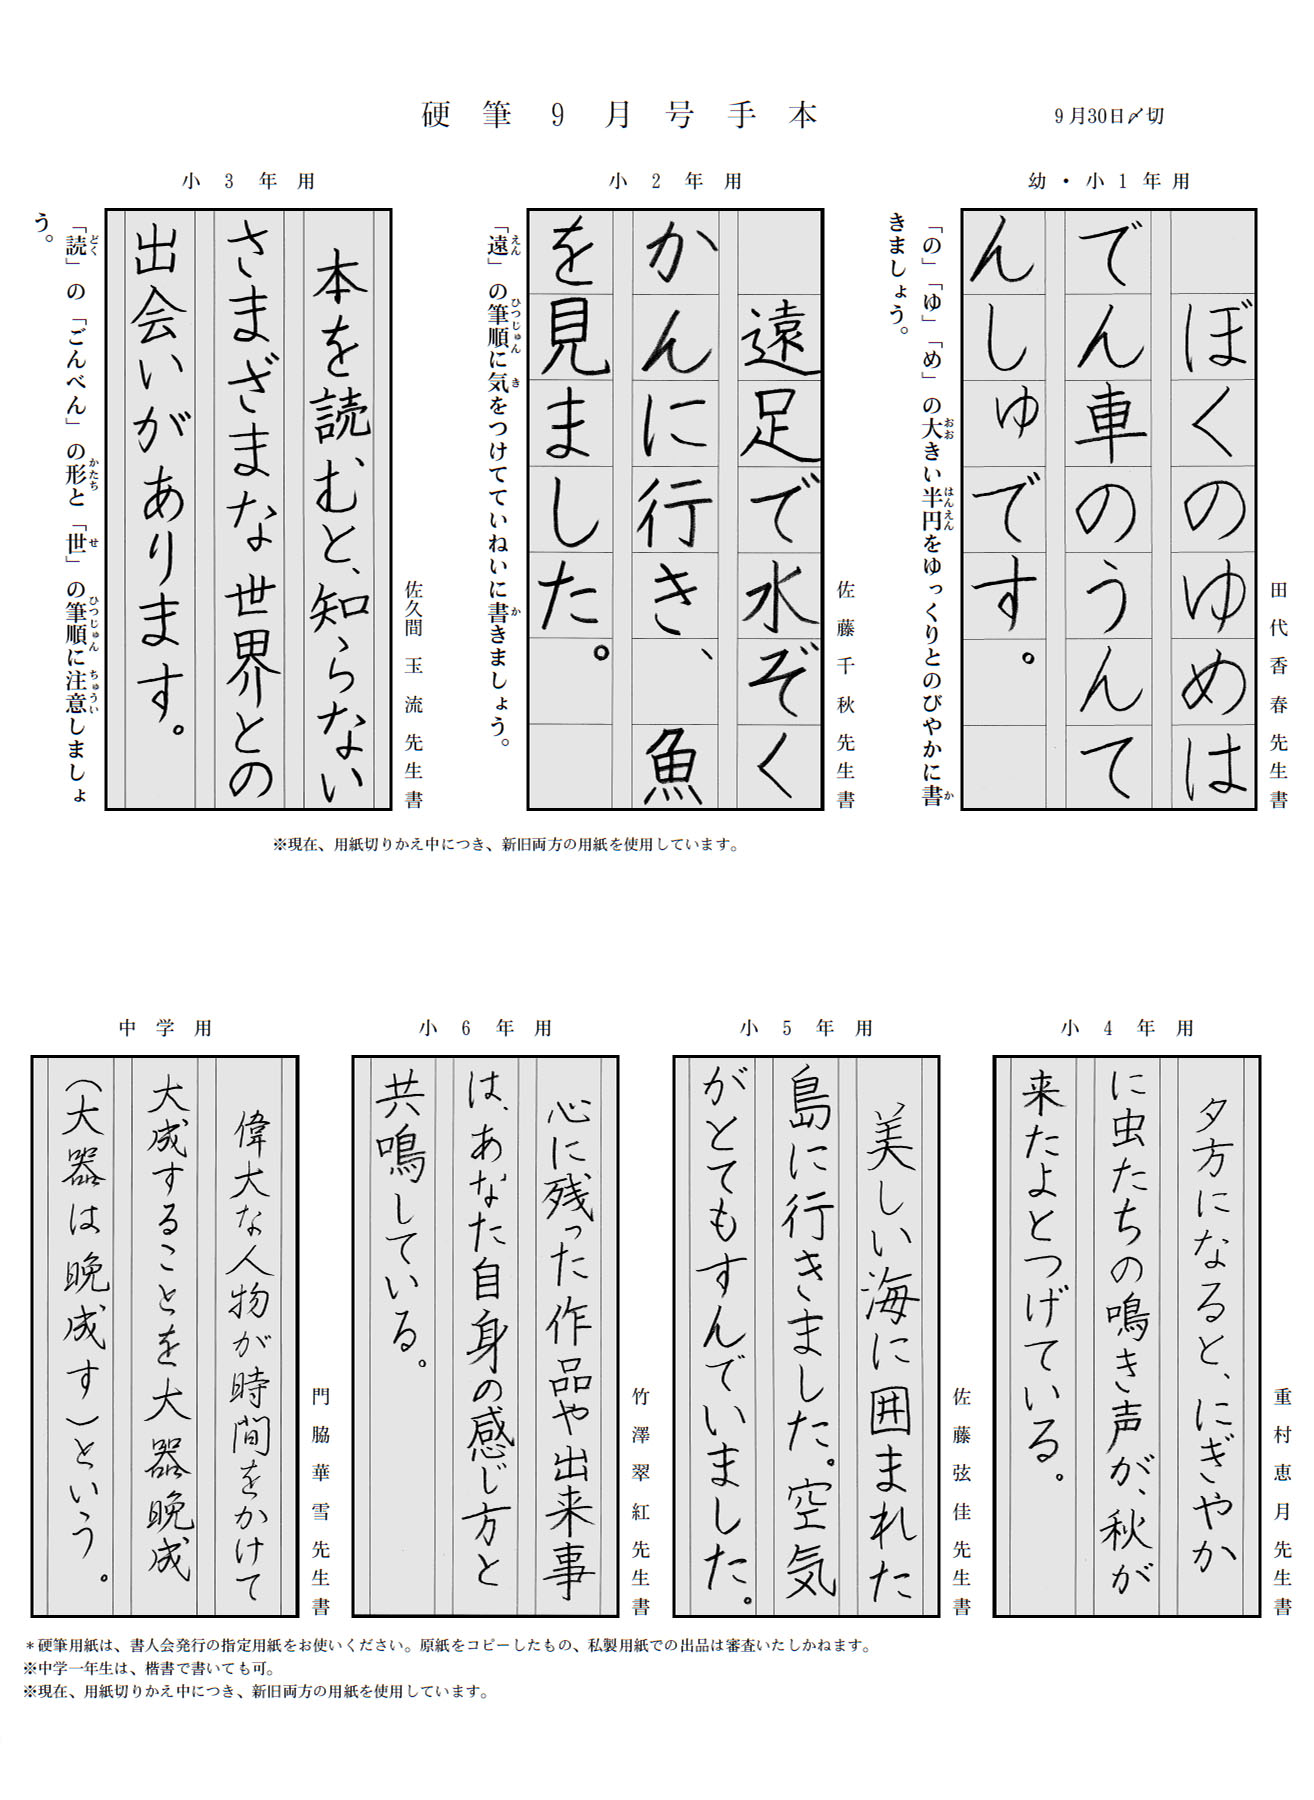 硬筆9月号手本
9月30日〆切
幼・小1年用
ぼくのゆめは
でん車のうんて
んしゅです。
田代香春先生書
「の」「ゆ」「め」の大きい半円をゆっくりとのびやかに書
きましょう。
小2年用
遠足で水ぞく
かんに行き、魚
を見ました。
佐藤千秋先生書
「遠」の筆順に気をつけてていねいに書きましょう。
小3年用
本を読むと、知らない
さまざまな世界との
出会いがあります。
佐久間玉流先生書
「読」の「ごんべん」の形と「世」の筆順に注意しましょ
う。
※現在、用紙切りかえ中につき、新旧両方の用紙を使用しています。
小4年用
夕方になると、にぎやか
に虫たちの鳴き声が、秋が
来たよとつげている。
重村恵月先生書
小5年用
美しい海に囲まれた
島に行きました。空気
がとてもすんでいました。
佐藤弦佳先生書
小6年用
心に残った作品や出来事
は、あなた自身の感じ方と
共鳴している。
竹澤翠紅先生書
中学用
偉大な人物が時間をかけて
大成することを大器晩成
（大器は晩成す）という。
門脇華雪先生書
＊硬筆用紙は、書人会発行の指定用紙をお使いください。原紙をコピーしたもの、私製用紙での出品は審査いたしかねます。
※中学一年生は、楷書で書いても可。
※現在、用紙切りかえ中につき、新旧両方の用紙を使用しています。